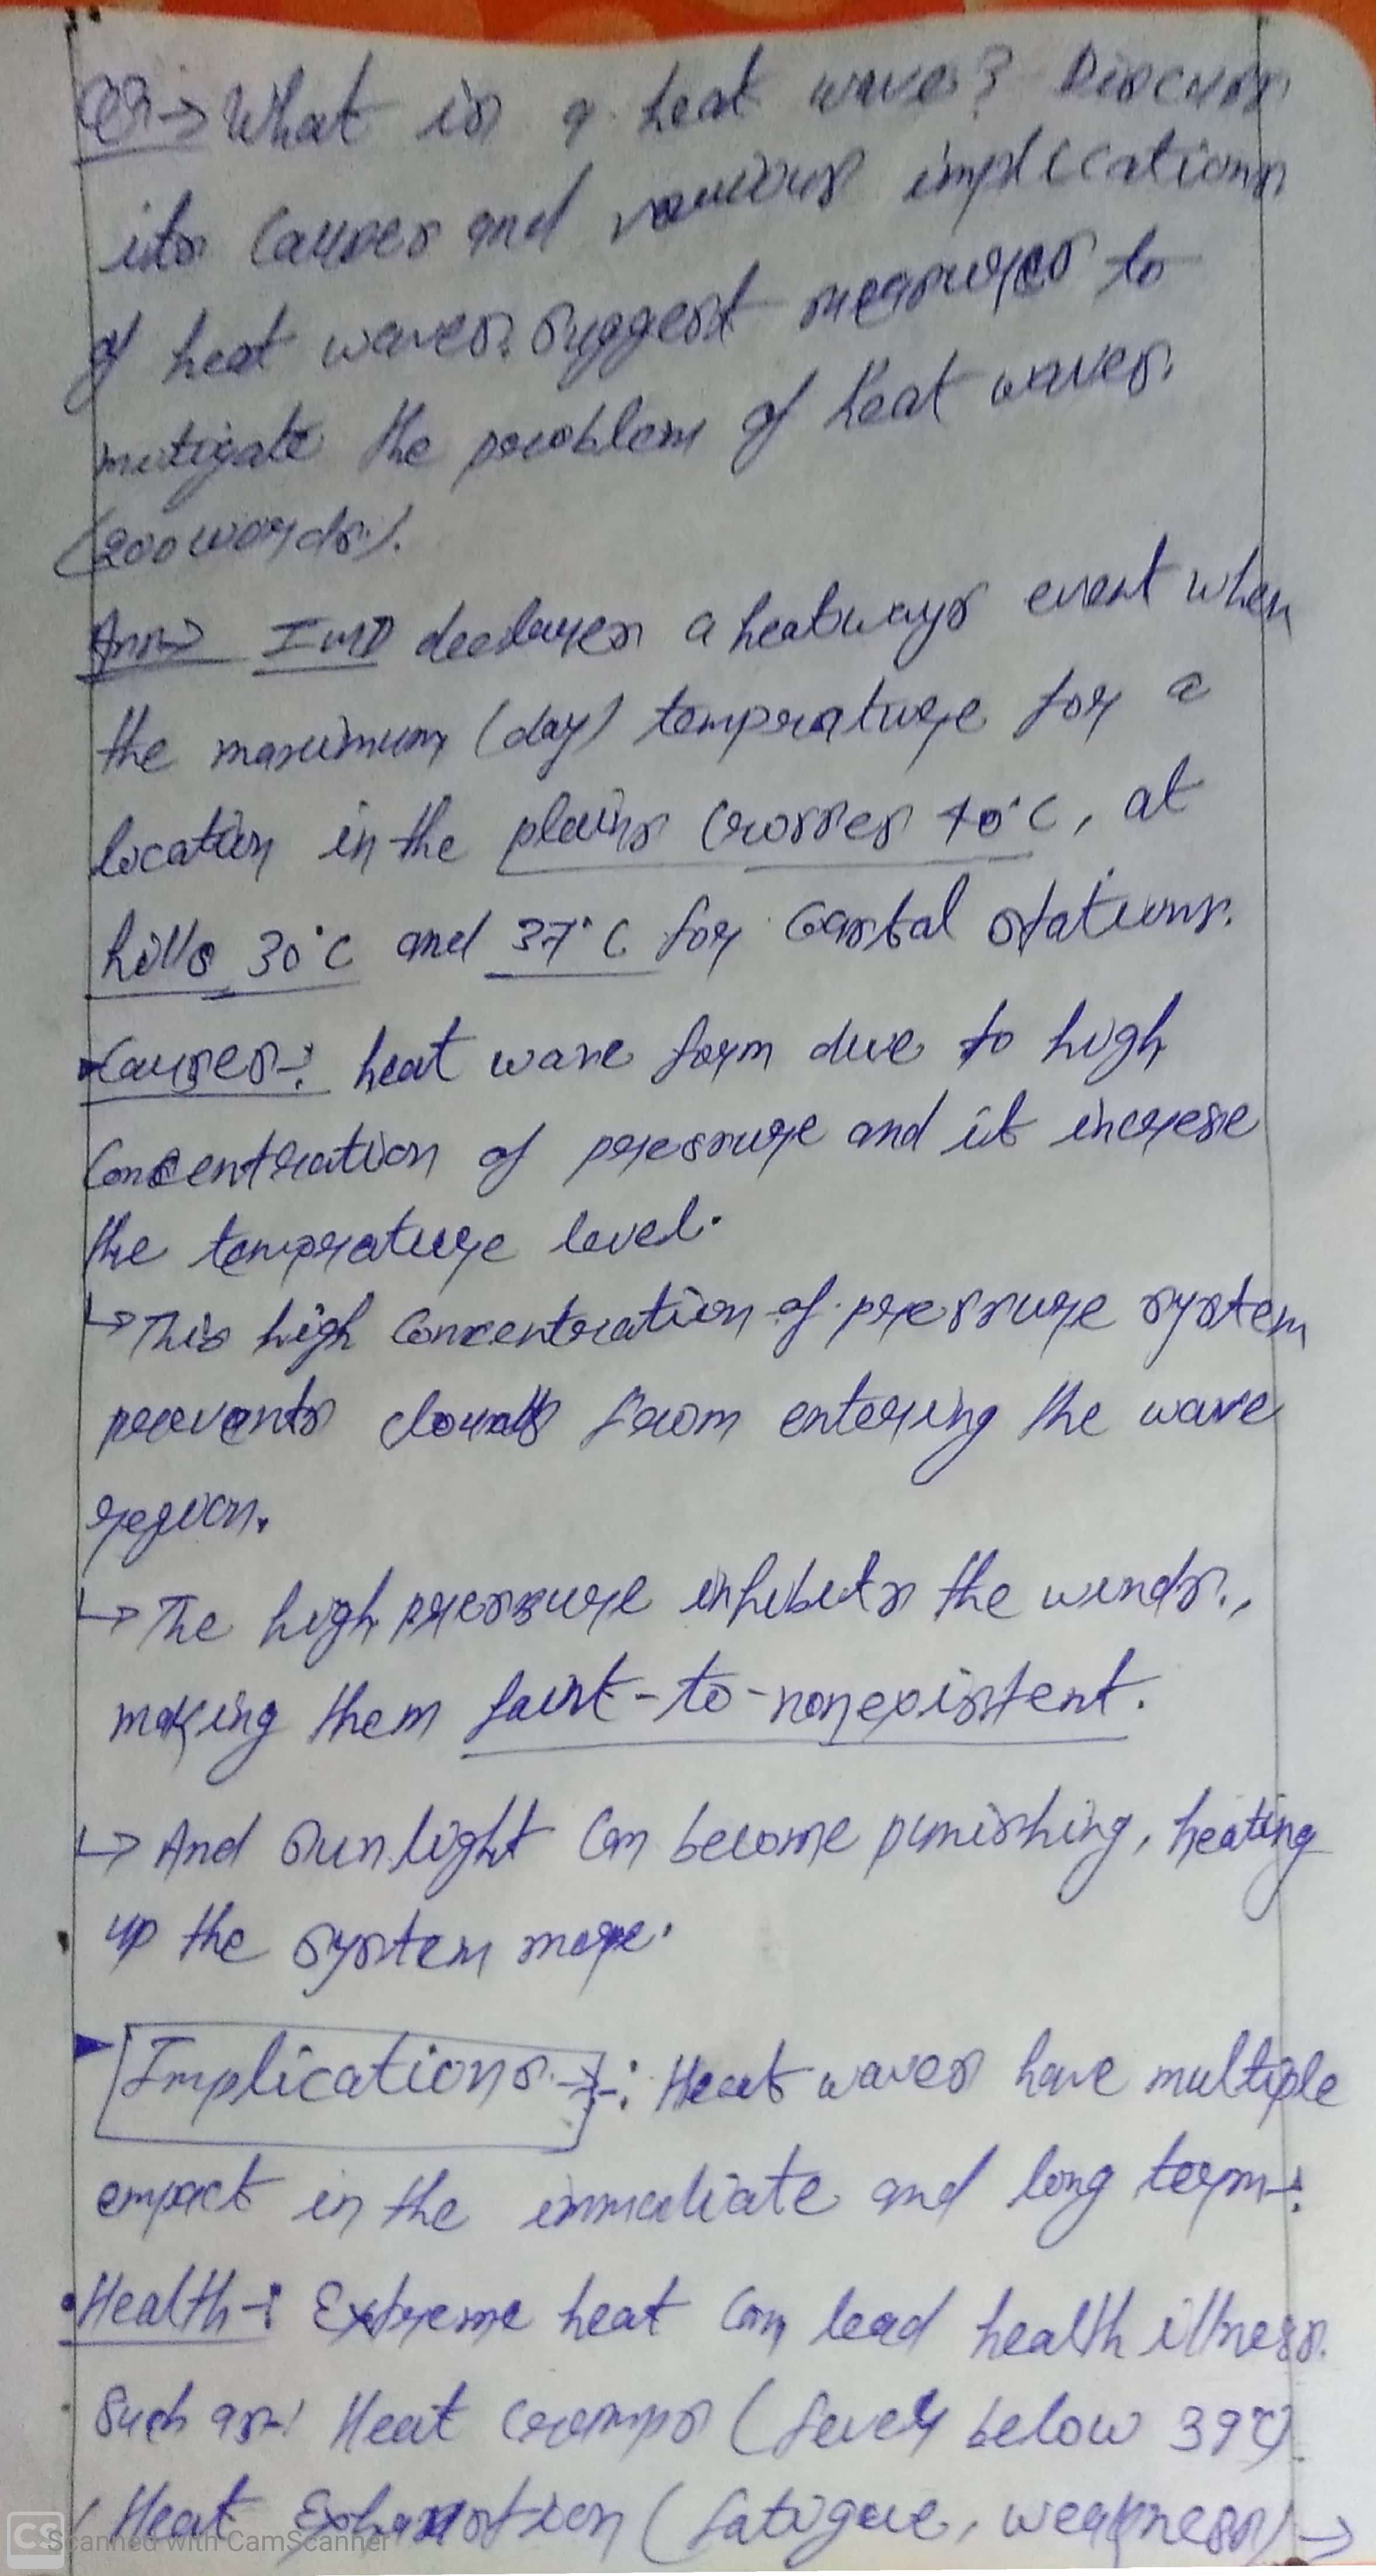 Q3→ What is a heat wave? Discuss
its causes and various implications
of heat waves. Suggest measures to
mitigate the problem of heat waves.
(200 words).
Ans→ IMD declares a heatways event when
the maximum (day) temprature for a
location in the plains crosses 40°C, at
hills 30°C and 37°C for Coastal stations.
Causes-: heat wave form due to high
Concentration of pressure and it increse
the temprature level.
↳ This high Concentration of pressure system
prevants clouds from entering the wave
region.
↳ The high pressure inhibits the winds.,
making them faint-to-nonexistent.
↳ And sunlight Can become punishing, heating
up the system more.
Implications→-: Heat waves have multiple
empact in the immediate and long term-:
• Health-: Extreme heat Can lead health illness.
Such as-: Heat cramps (fever below 39°C)
Heat Exhaustion (fatigue, weakness) →
CS Scanned with CamScanner